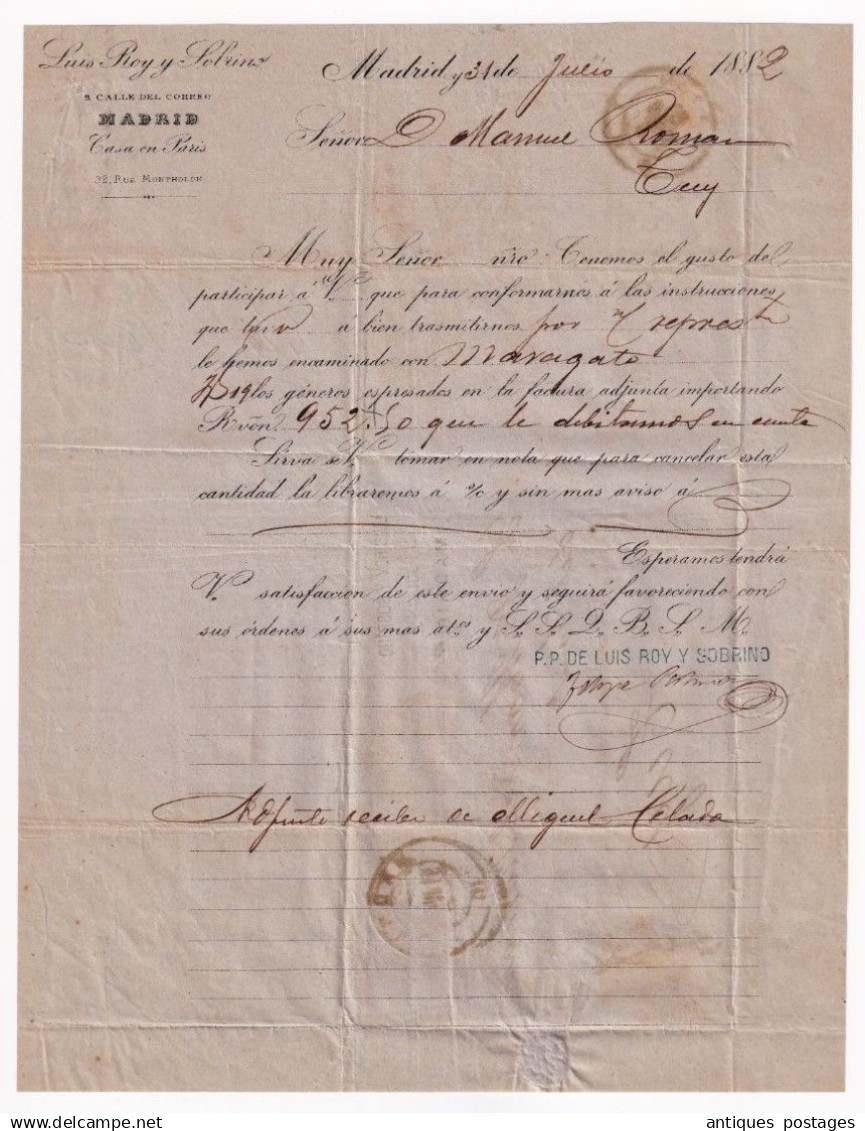 Luis Roy y Sobrino
Madrid y 31 de Julio de 1882
2. CALLE DEL CORREO
MADRID
Casa en Paris
32, Rue Montholon
Señor D Manuel Roman
Tuy
Muy Señor nro: Tenemos el gusto de
participar á V. que para conformarnos á las instrucciones
que tuvo á bien trasmitirnos por repres
le hemos encaminado con Maragato
los géneros espresados en la factura adjunta importando
Rvon 952 lo que le debitamos en cuenta
Sirva se V. tomar en nota que para cancelar esta
cantidad la libraremos á %o y sin mas aviso á
Esperamos tendrá
V. satisfaccion de este envio y seguirá favoreciendo con
sus órdenes á sus mas at.os y S. S. Q. B. S. M.
P.P. DE LUIS ROY Y SOBRINO
Adjunto recibo de Miguel Celada
antiques postages